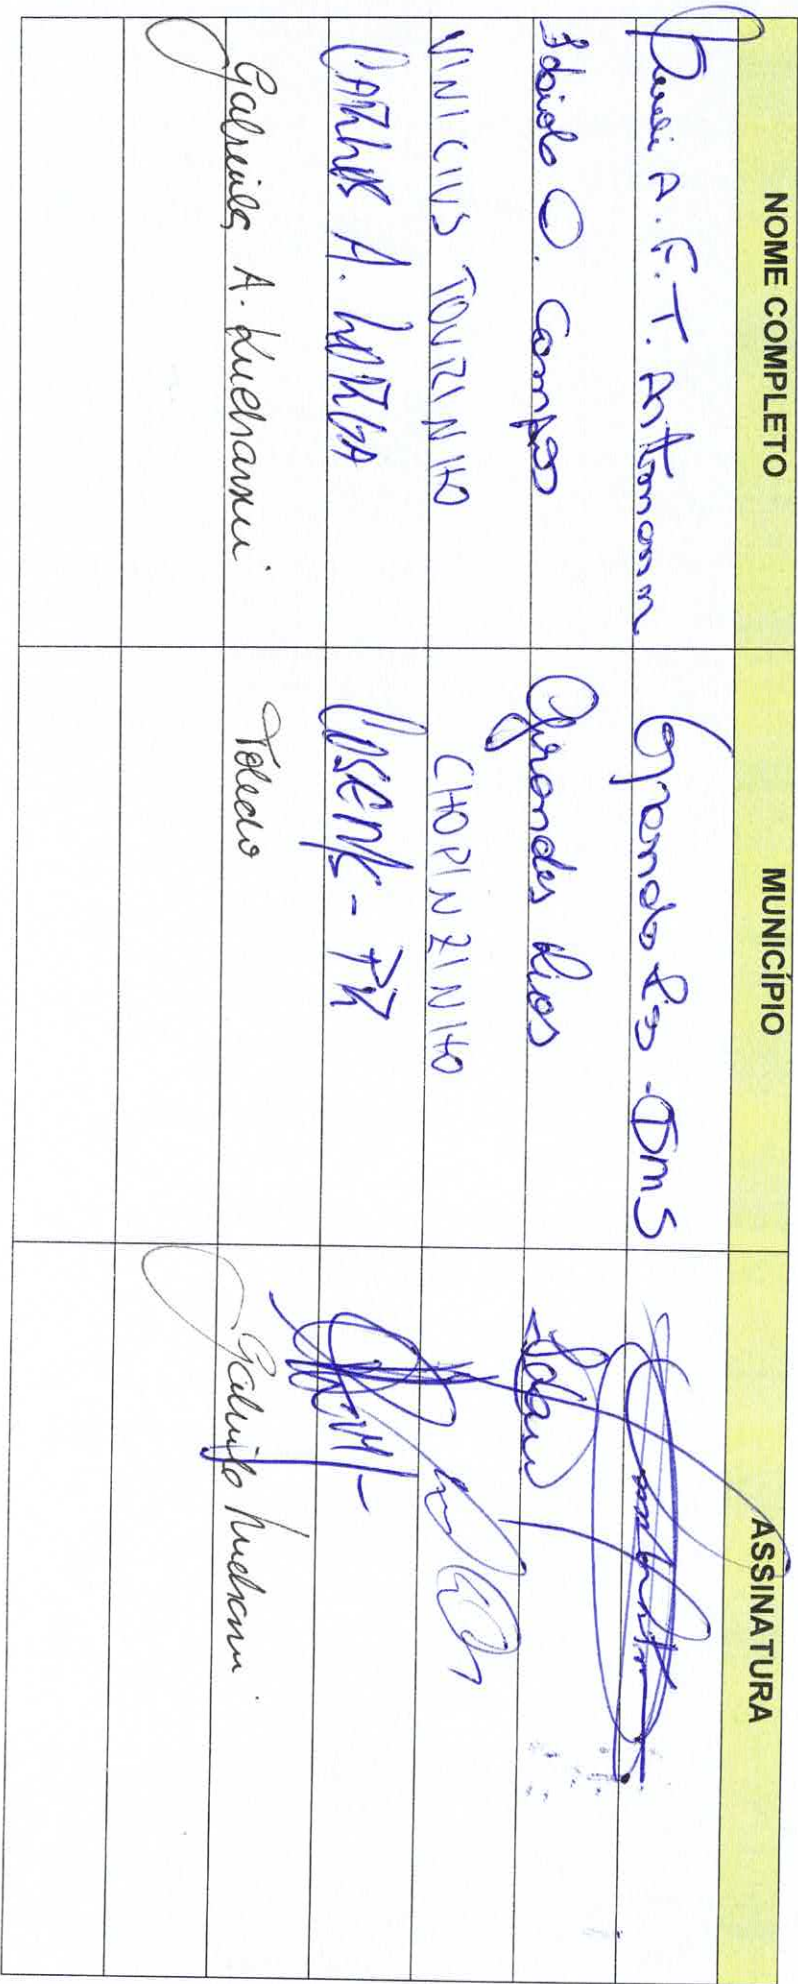 NOME COMPLETO MUNICÍPIO ASSINATURA
A. F. T. Antomann Grandes Rios - DMS
O. Campos Grandes Rios
VINICIUS TOURINHO CHOPINZINHO
CARLOS A. LORGA COSEMS - PR
Gabriela A. Kucharski Toledo Gabriela Kucharski